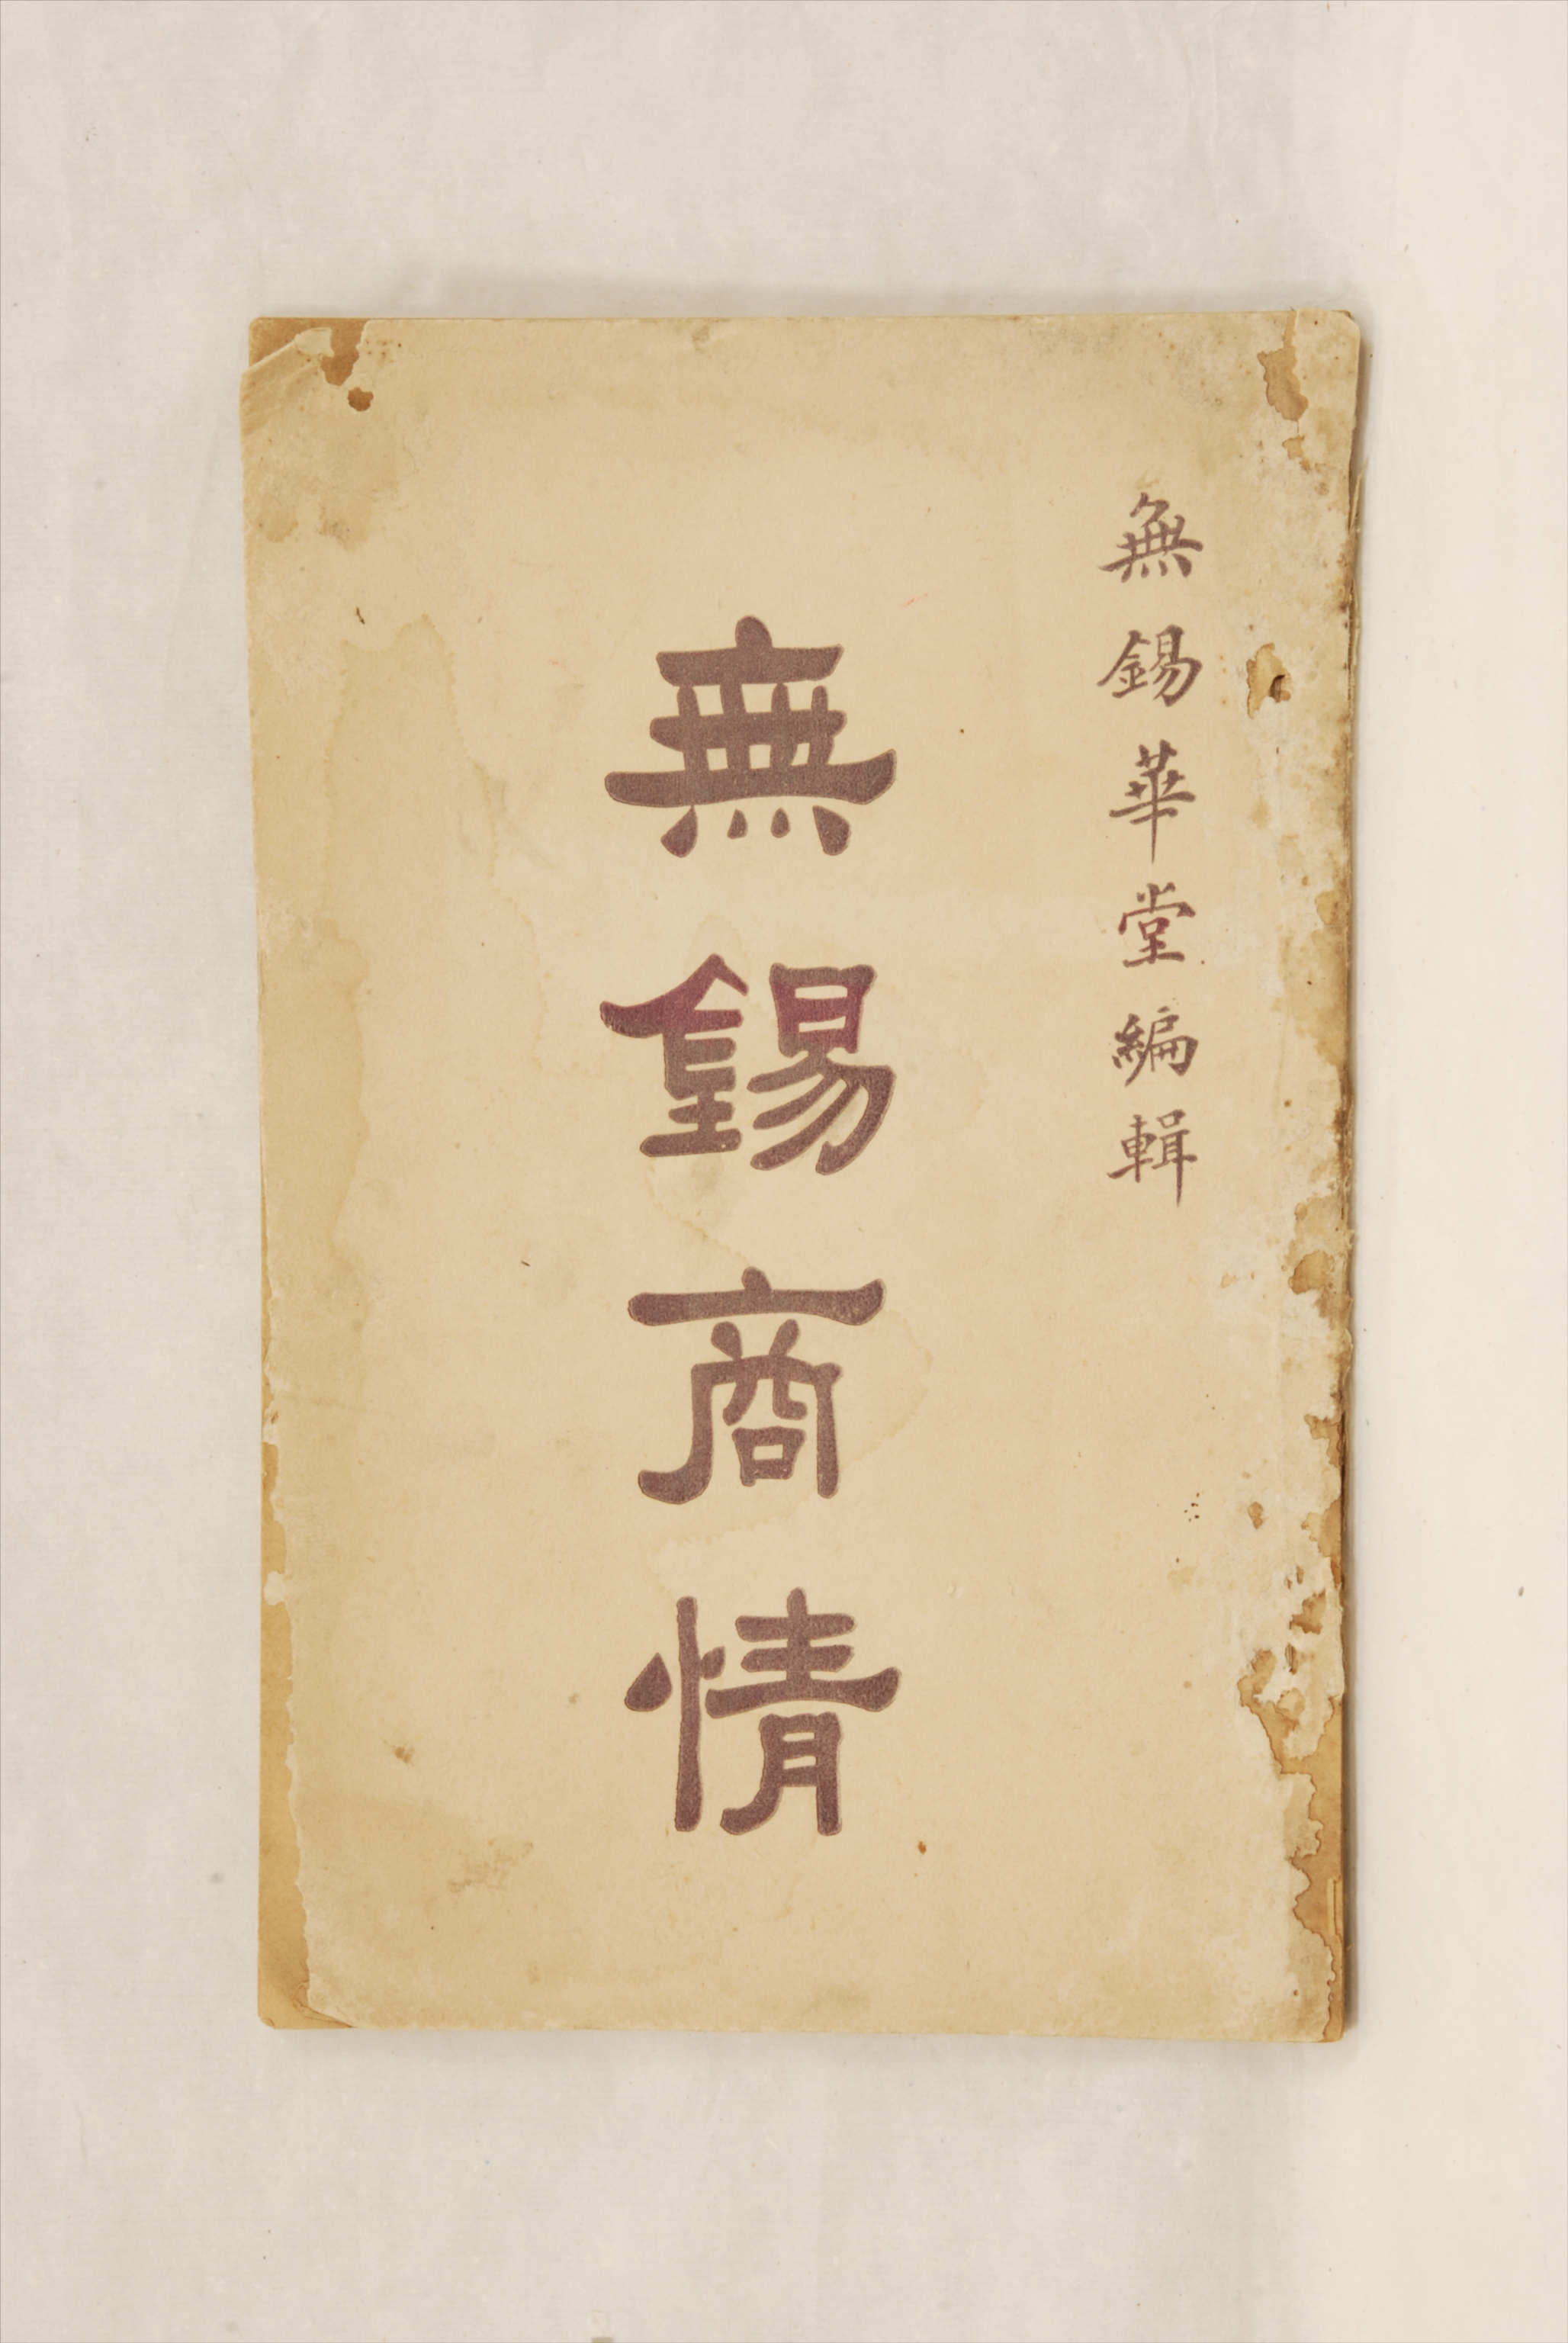 無錫華堂編輯
無錫商情